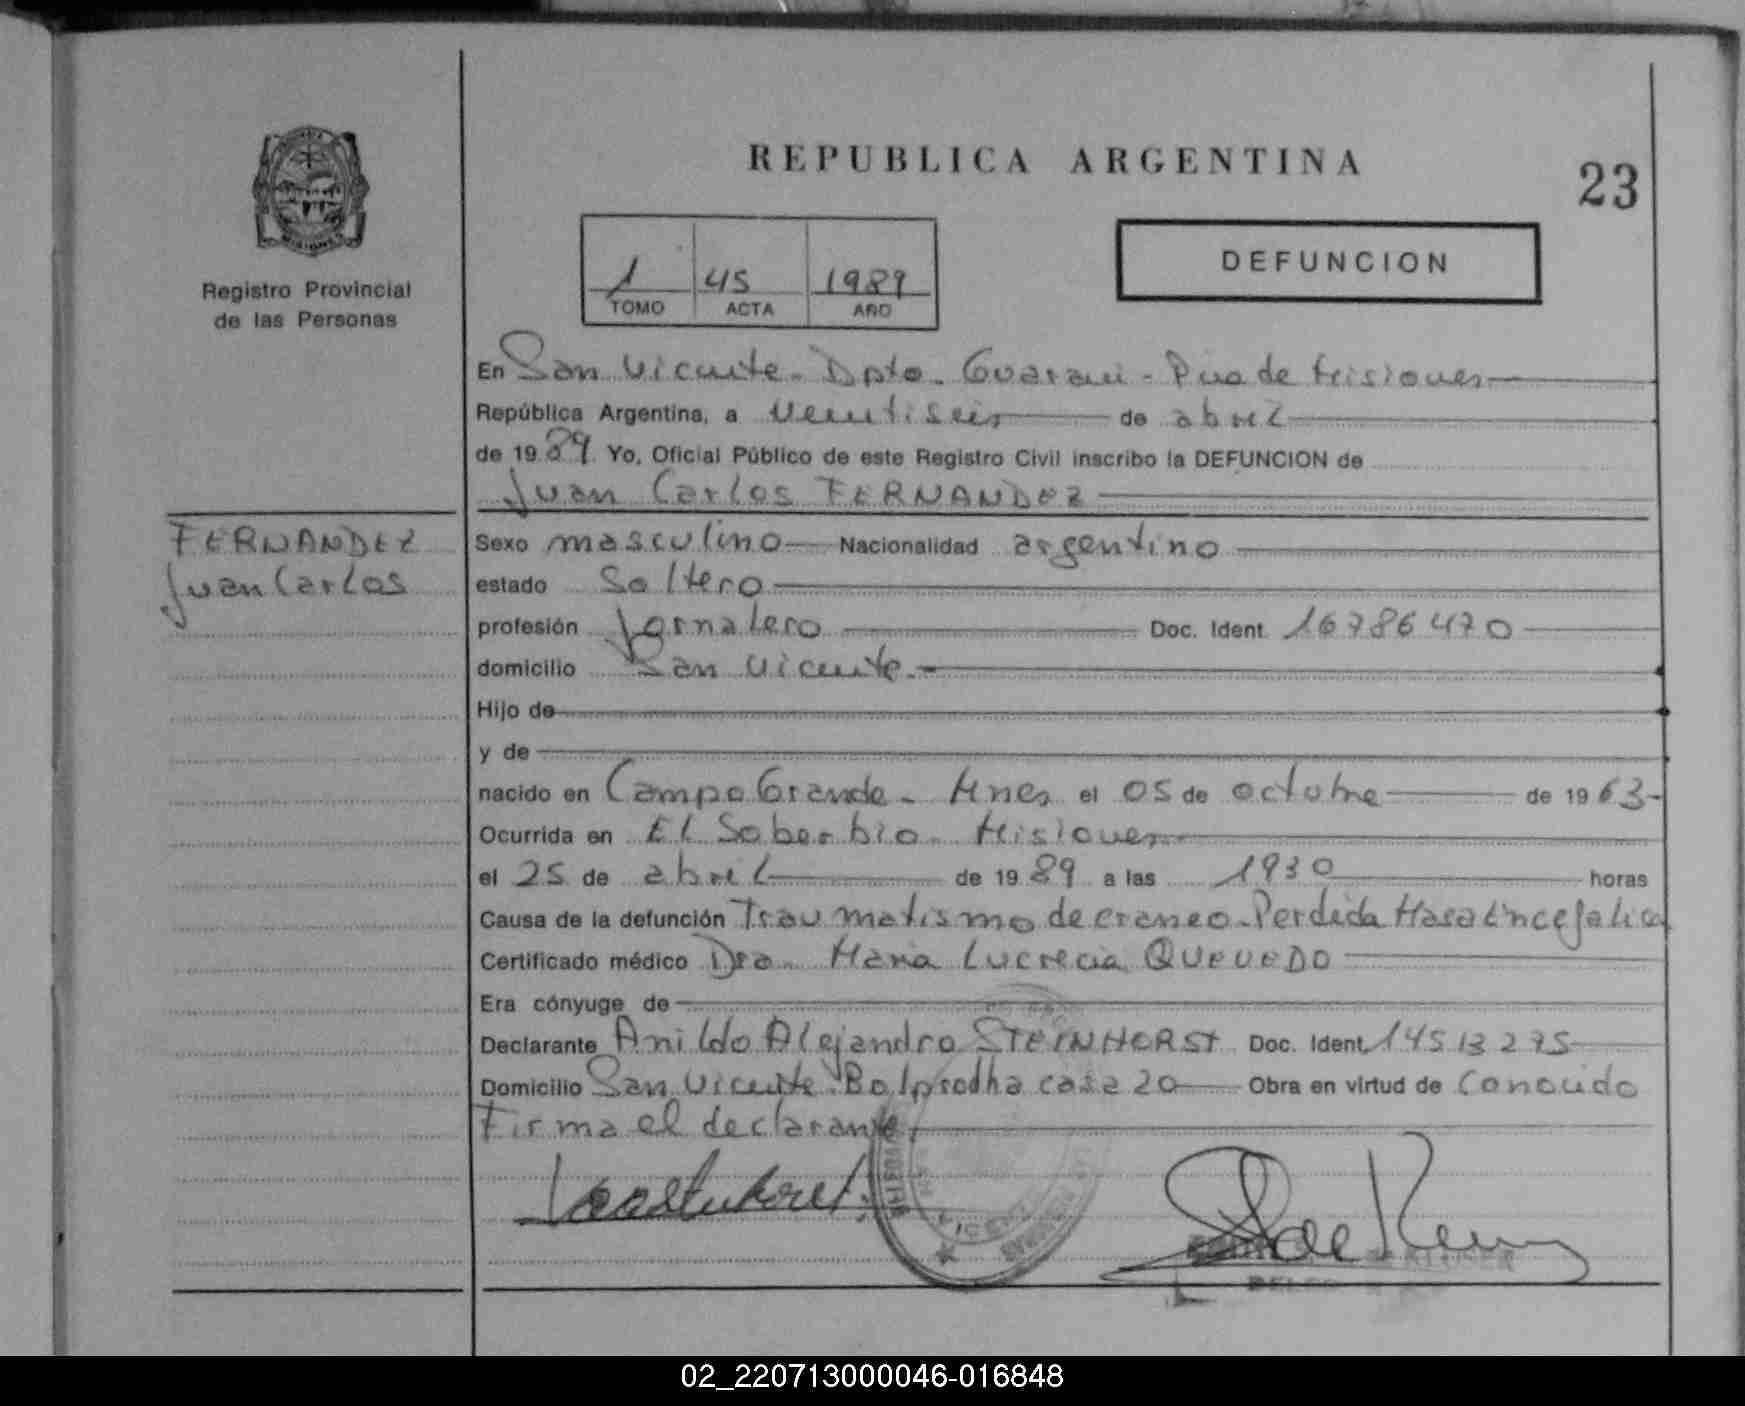 REPUBLICA ARGENTINA
23
Registro Provincial
de las Personas
1 45 1989
TOMO ACTA AÑO
DEFUNCION
En San Vicente - Dpto. Guarani - Pcia de Misiones
República Argentina, a veintiseis de abril
de 1989 Yo, Oficial Público de este Registro Civil inscribo la DEFUNCION de
Juan Carlos FERNANDEZ
FERNANDEZ
Juan Carlos
Sexo masculino Nacionalidad argentino
estado Soltero
profesión Jornalero Doc. Ident. 16786470
domicilio San Vicente.-
Hijo de
y de
nacido en Campo Grande - Mnes el 05 de octubre de 1963-
Ocurrida en El Soberbio - Misiones
el 25 de abril de 1989 a las 1930 horas
Causa de la defunción Traumatismo de craneo - Perdida Masa Encefalica
Certificado médico Dra. Maria Lucrecia QUEVEDO
Era cónyuge de
Declarante Anildo Alejandro STEINHORST Doc. Ident. 14513275
Domicilio San Vicente Bº Iprodha casa 20 Obra en virtud de Conocido
Firma el declarante,
02_220713000046-016848